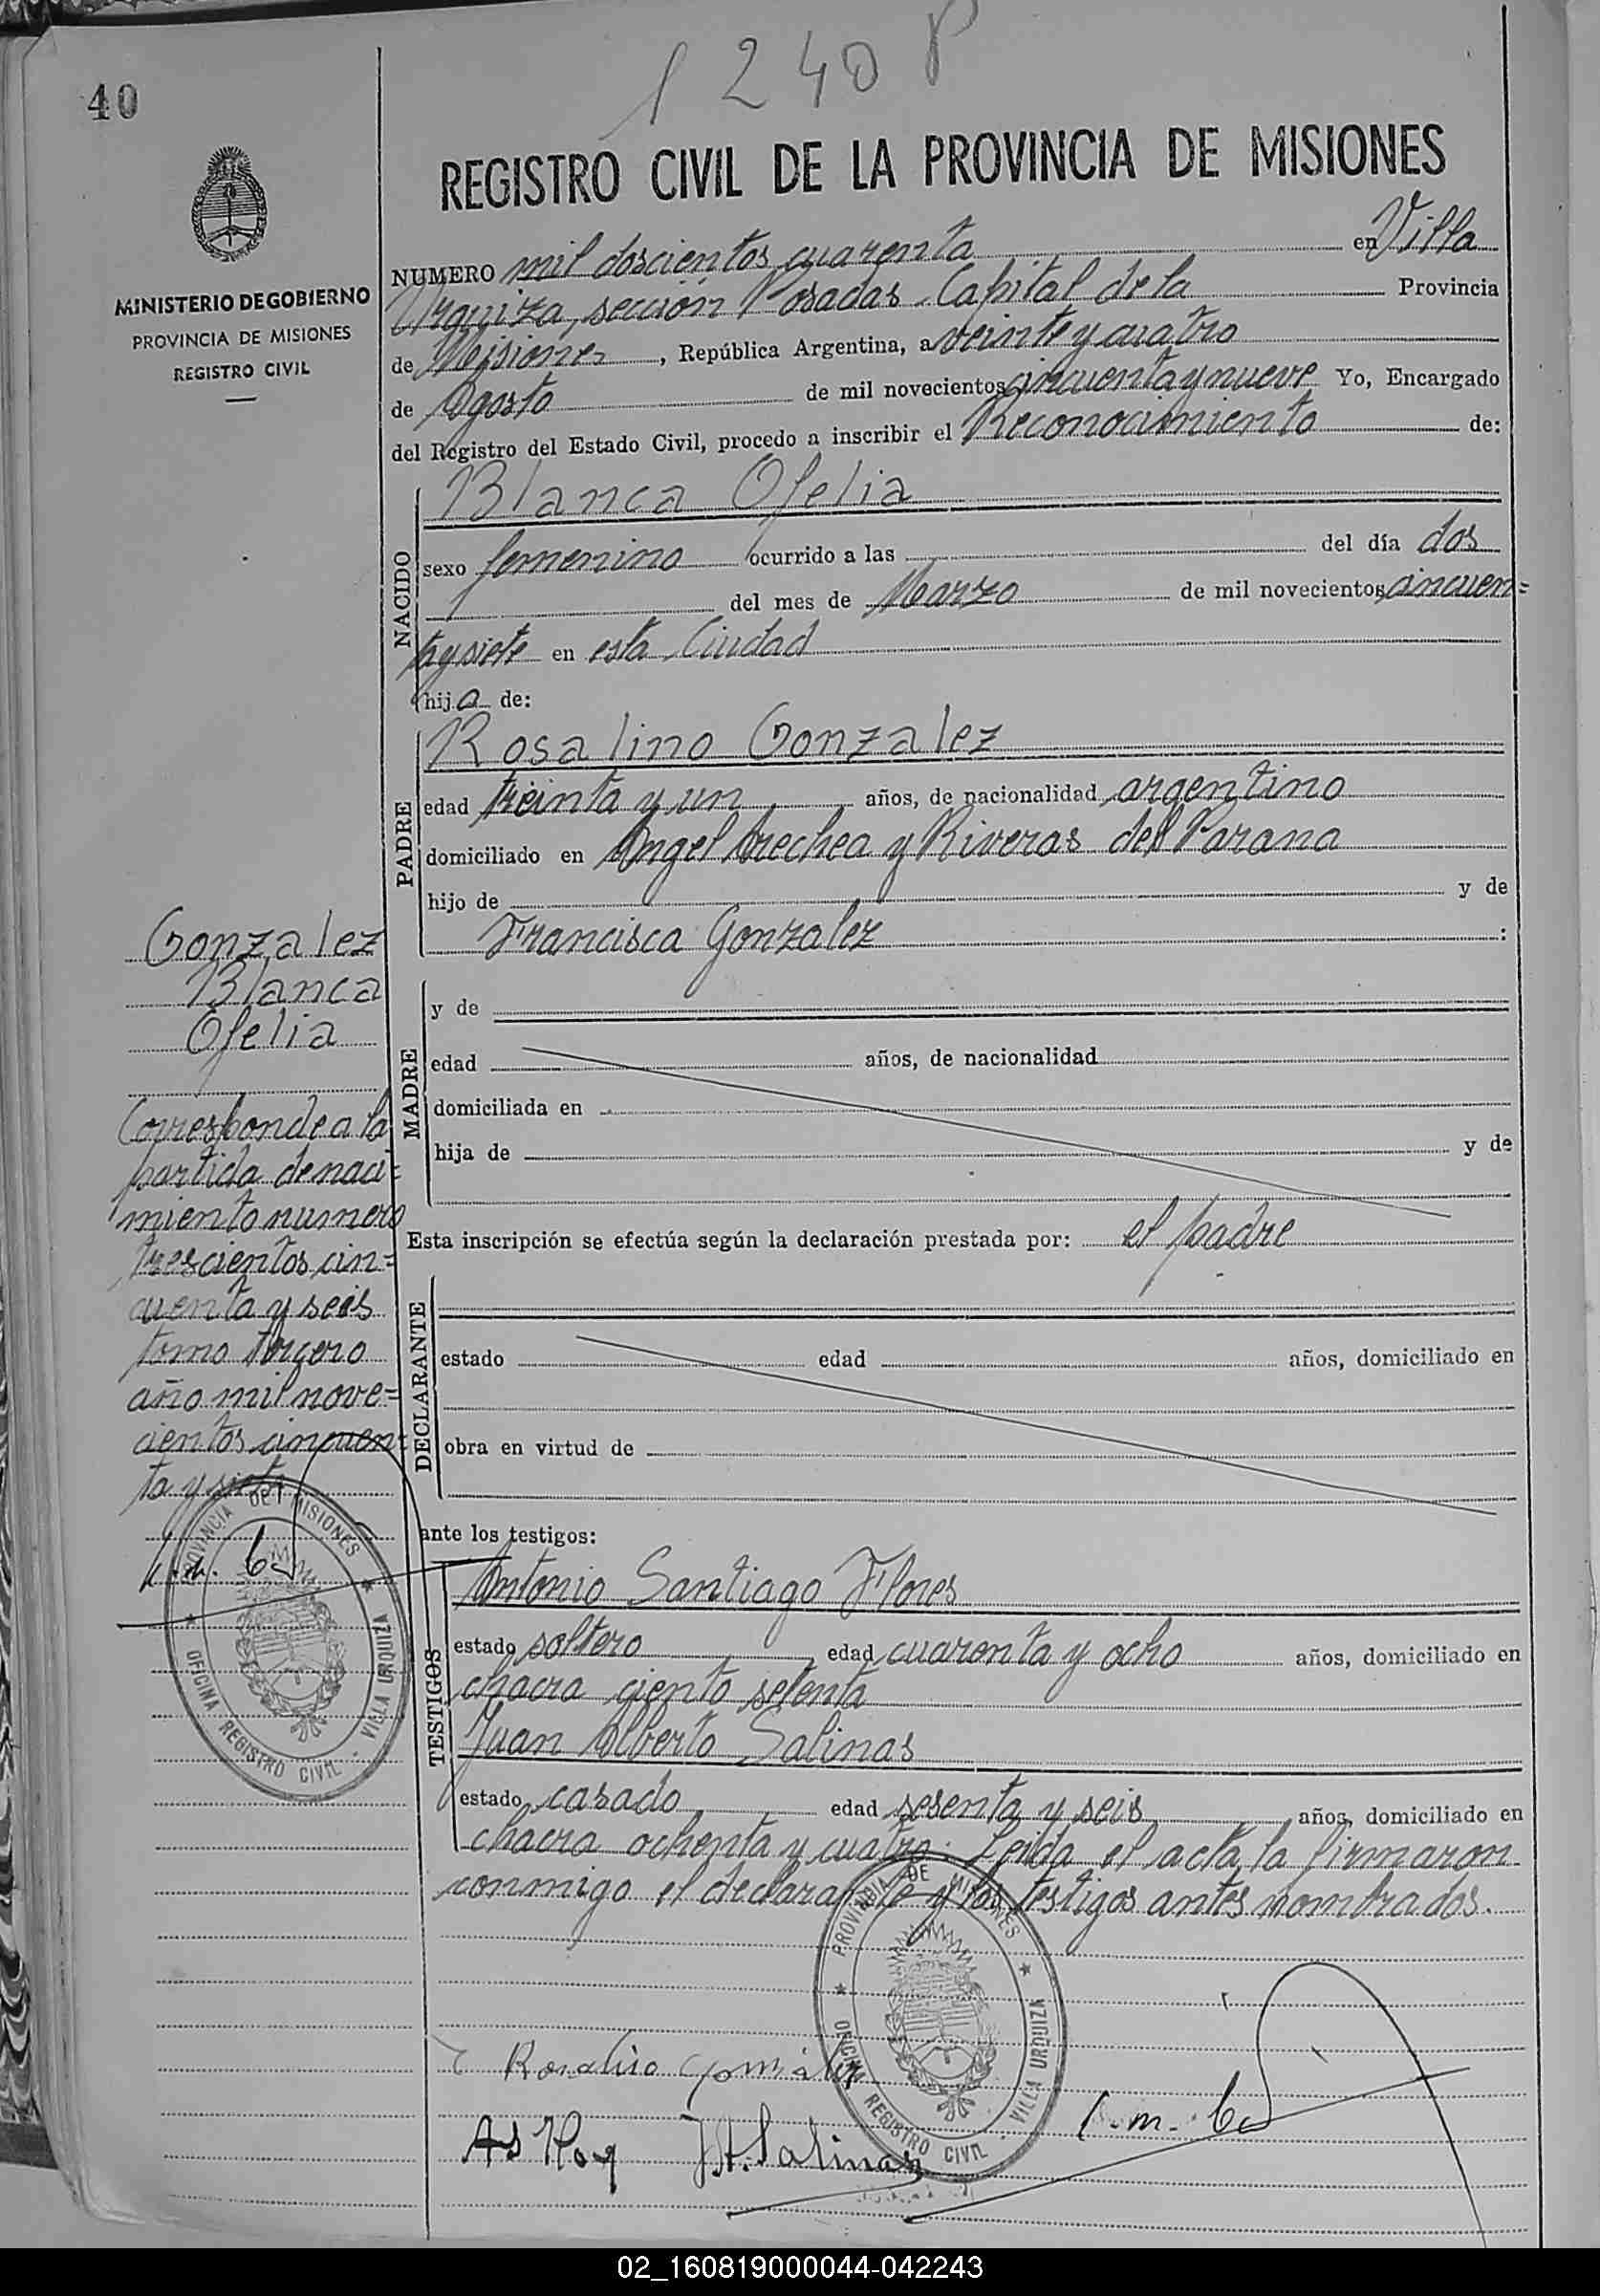 1240 P
40
REGISTRO CIVIL DE LA PROVINCIA DE MISIONES
MINISTERIO DE GOBIERNO
PROVINCIA DE MISIONES
REGISTRO CIVIL
NUMERO mil doscientos cuarenta en Villa
Urquiza, sección Posadas Capital de la Provincia
de Misiones, República Argentina, a veinte y cuatro
de Agosto de mil novecientos cincuenta y nueve Yo, Encargado
del Registro del Estado Civil, procedo a inscribir el Reconocimiento de:
NACIDO
Blanca Ofelia
sexo femenino ocurrido a las del día dos
del mes de Marzo de mil novecientos cincuen=
ta y siete en esta Ciudad
hija de:
PADRE
Rosalino Gonzalez
edad treinta y un años, de nacionalidad argentino
domiciliado en Angel Arechea y Riveras del Parana
hijo de y de
Francisca Gonzalez :
MADRE
y de
edad años, de nacionalidad
domiciliada en
hija de y de
Esta inscripción se efectúa según la declaración prestada por: el padre
DECLARANTE
estado edad años, domiciliado en
obra en virtud de
ante los testigos:
TESTIGOS
Antonio Santiago Flores
estado soltero edad cuarenta y ocho años, domiciliado en
chacra ciento setenta
Juan Alberto Salinas
estado casado edad sesenta y seis años, domiciliado en
chacra ochenta y cuatro. Leida el acta, la firmaron
conmigo el declarante y los testigos antes nombrados.
Gonzalez
Blanca
Ofelia
Corresponde a la
partida de naci=
miento numero
trescientos cin=
cuenta y seis
tomo tercero
año mil nove=
cientos cincuen=
ta y siete
PROVINCIA DE MISIONES
OFICINA REGISTRO CIVIL - VILLA URQUIZA
PROVINCIA DE MISIONES
OFICINA REGISTRO CIVIL - VILLA URQUIZA
Rosalino Gonzalez
J.A. Salinas
02_160819000044-042243